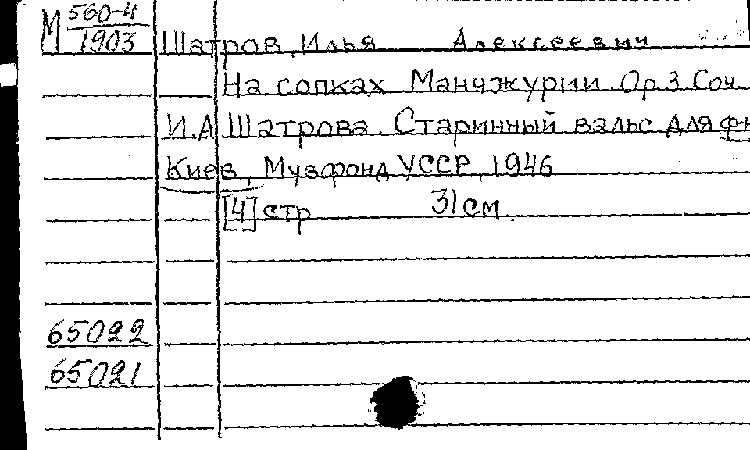 М 560-4
1903
Шатров, Илья Алексеевич
На сопках Манчжурии. Ор. 3. Соч.
И.А. Шатрова. Старинный вальс для фн
Киев, Музфонд УССР, 1946
[4] стр 31 см.
65022
65021